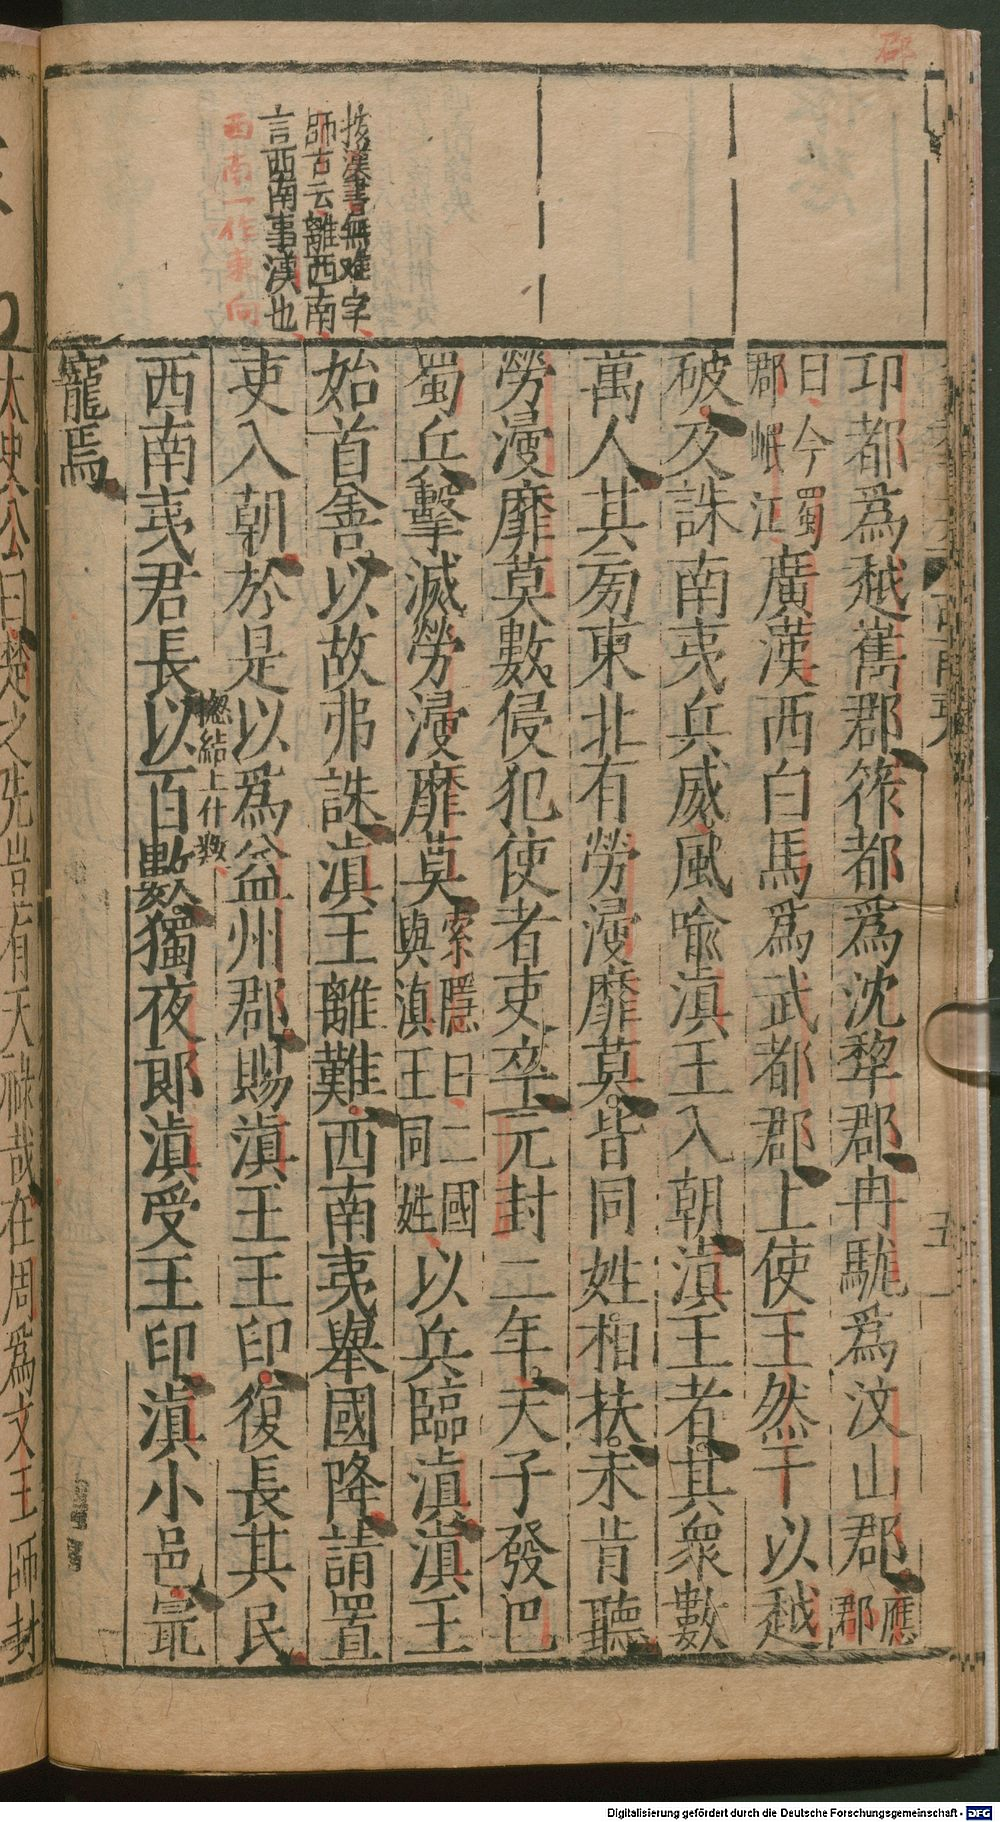 邛都爲越嶲郡筰都爲沈犂郡冉駹爲汶山郡應
曰今蜀
郡岷江
廣漢西白馬爲武都郡上使王然于以越
破及誅南夷兵威風喩滇王入朝滇王者其衆數
萬人其旁東北有勞漫靡莫皆同姓相扶未肯聽
勞漫靡莫數侵犯使者吏卒元封二年天子發巴
蜀兵擊滅勞漫靡莫索隱曰二國
與滇王同姓
以兵臨滇滇王
始首善以故弗誅滇王離難西南夷舉國降請置
吏入朝於是以爲益州郡賜滇王王印復長其民
西南夷君長以百數獨夜郎滇受王印滇小邑最
寵焉
按漢書無难字
師古云離西南
言西南事漢也
西南一作東向
總結上什數
太史公曰楚之先豈有天祿哉在周爲文王師封
五
Digitalisierung gefördert durch die Deutsche Forschungsgemeinschaft - DFG